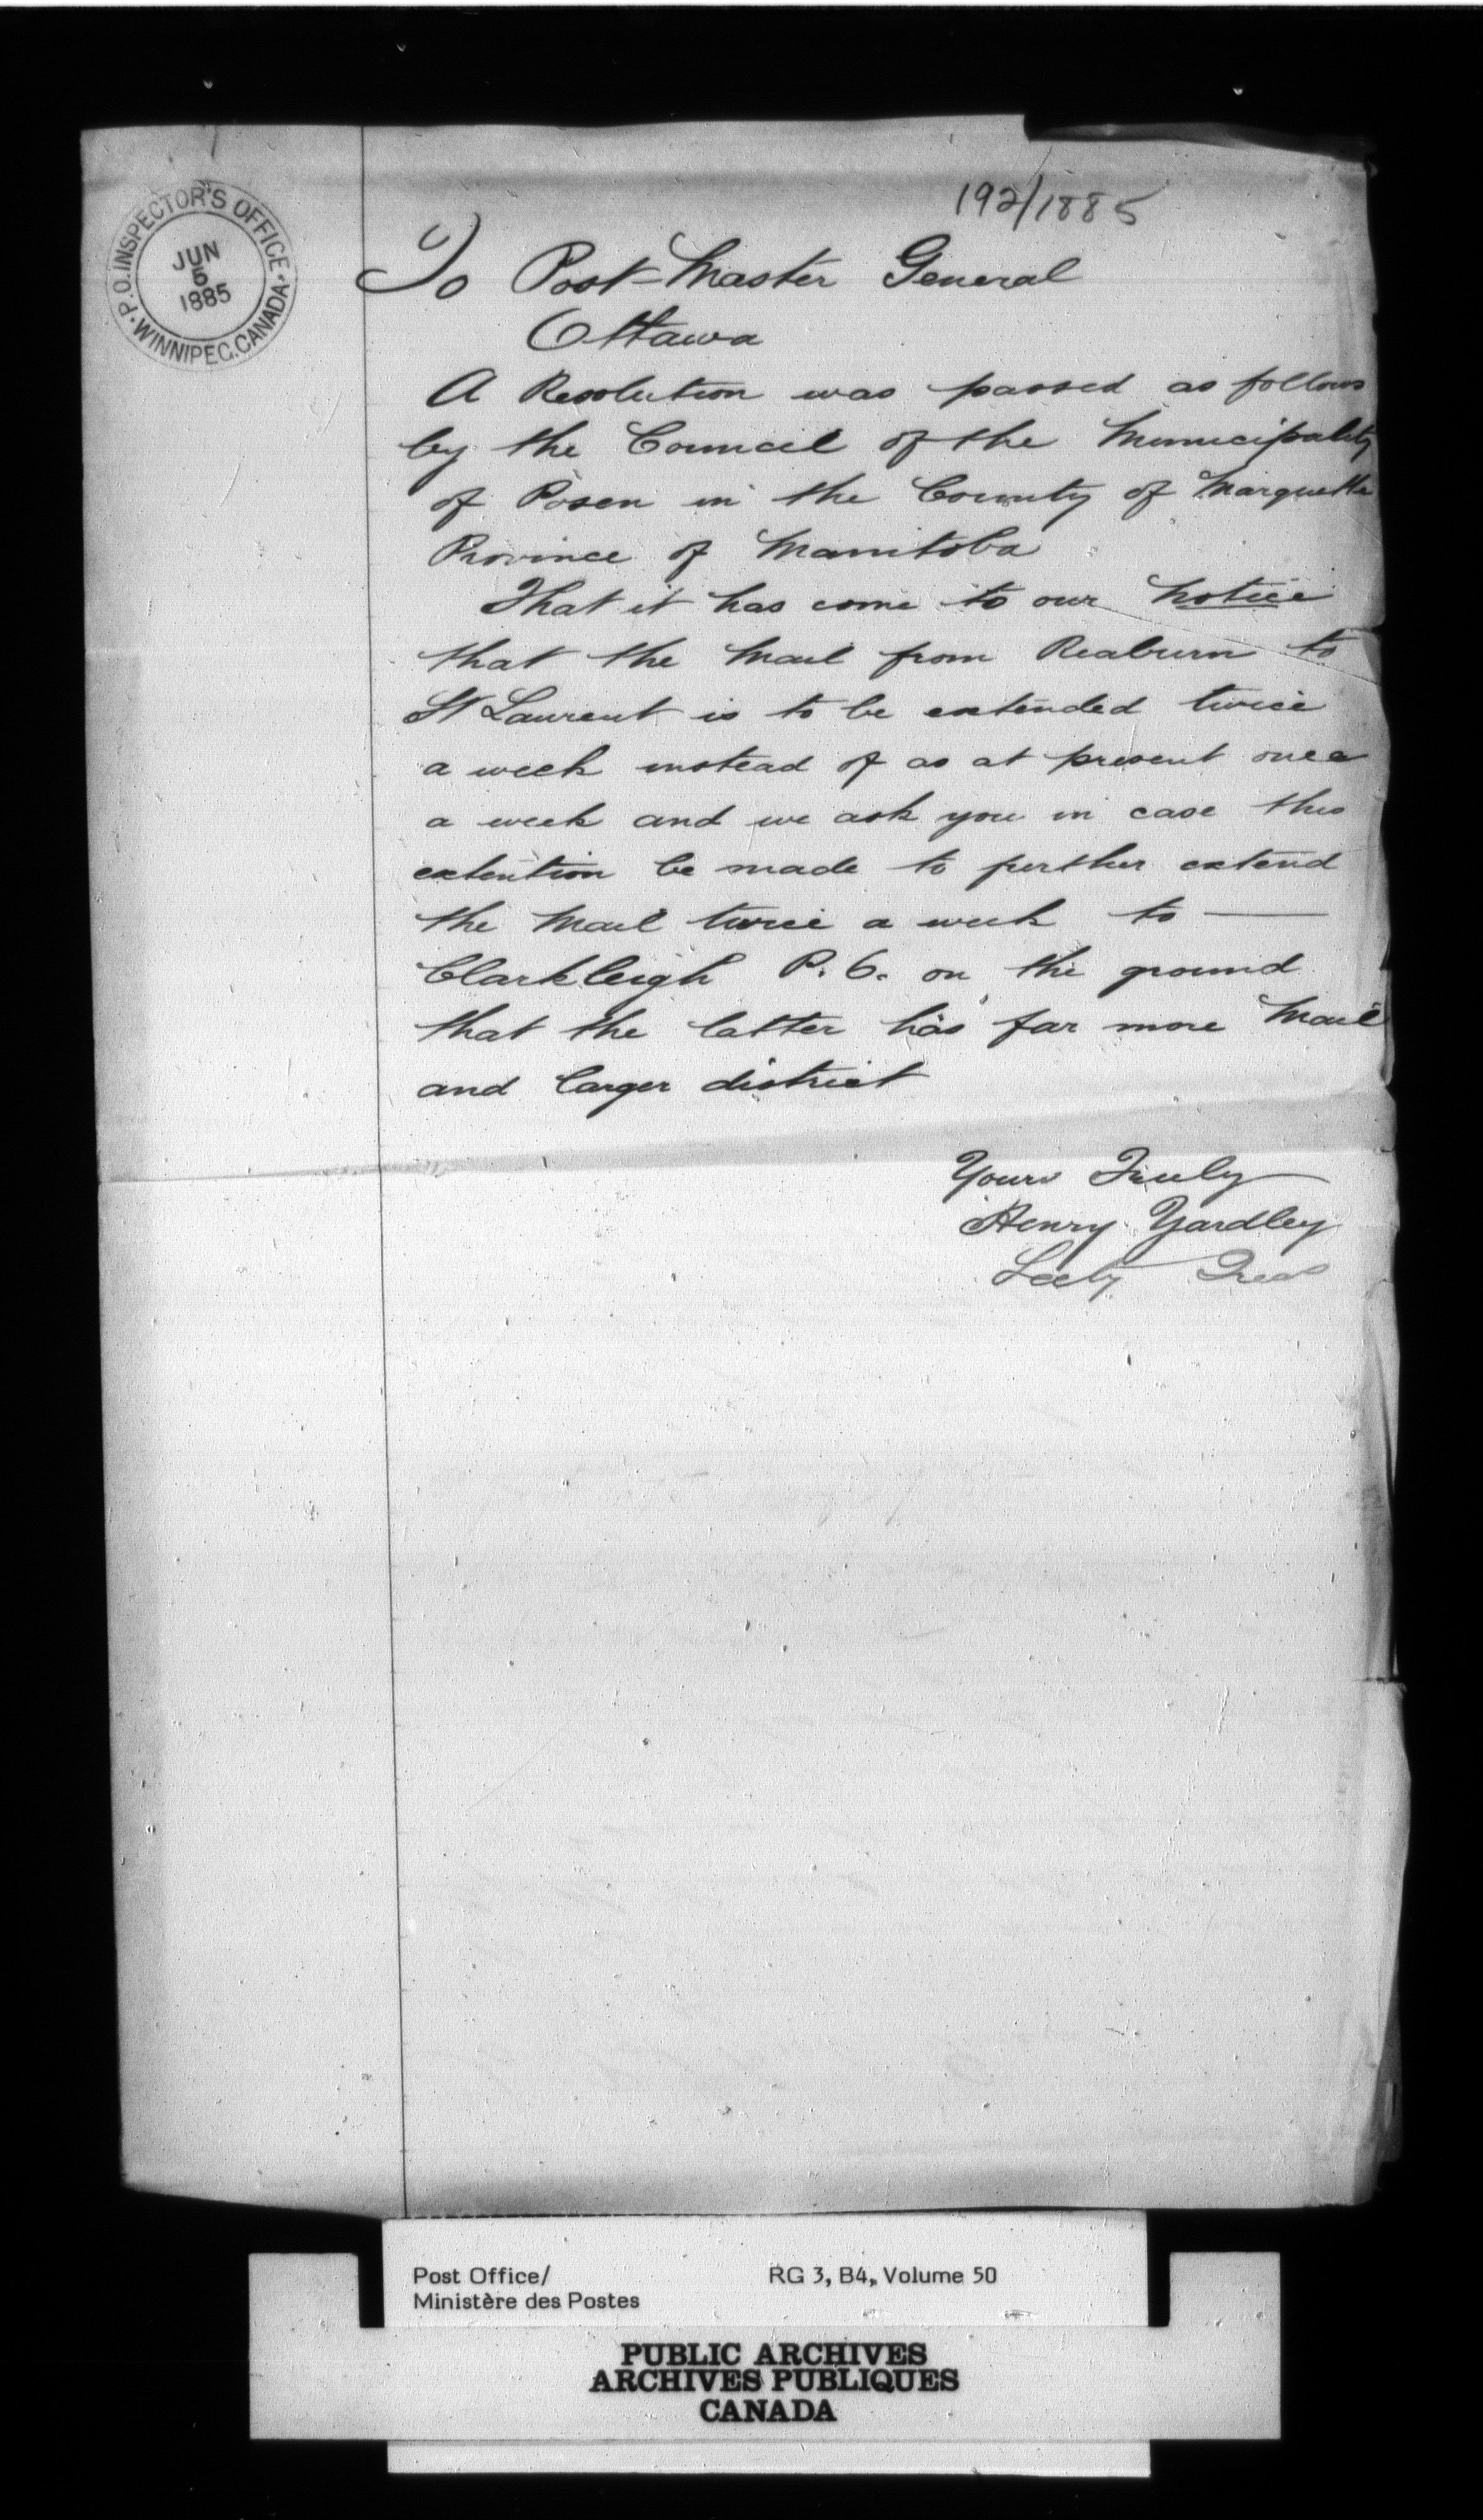 192/1885
P.O. INSPECTOR'S OFFICE. WINNIPEG. CANADA.
JUN
5
1885
To Post-Master General
Ottawa
A Resolution was passed as follows
by the Council of the Municipality
of Posen in the County of Marquette
Province of Manitoba
That it has come to our notice
that the Mail from Reaburn to
St Laurent is to be extended twice
a week instead of as at present once
a week and we ask you in case this
extention be made to further extend
the Mail twice a week to —
Clarkleigh P. O. on the ground
that the latter has far more Mail
and larger district
Yours Truly
Henry Yardley
Secty Treas
Post Office/ RG 3, B4, Volume 50
Ministère des Postes
PUBLIC ARCHIVES
ARCHIVES PUBLIQUES
CANADA